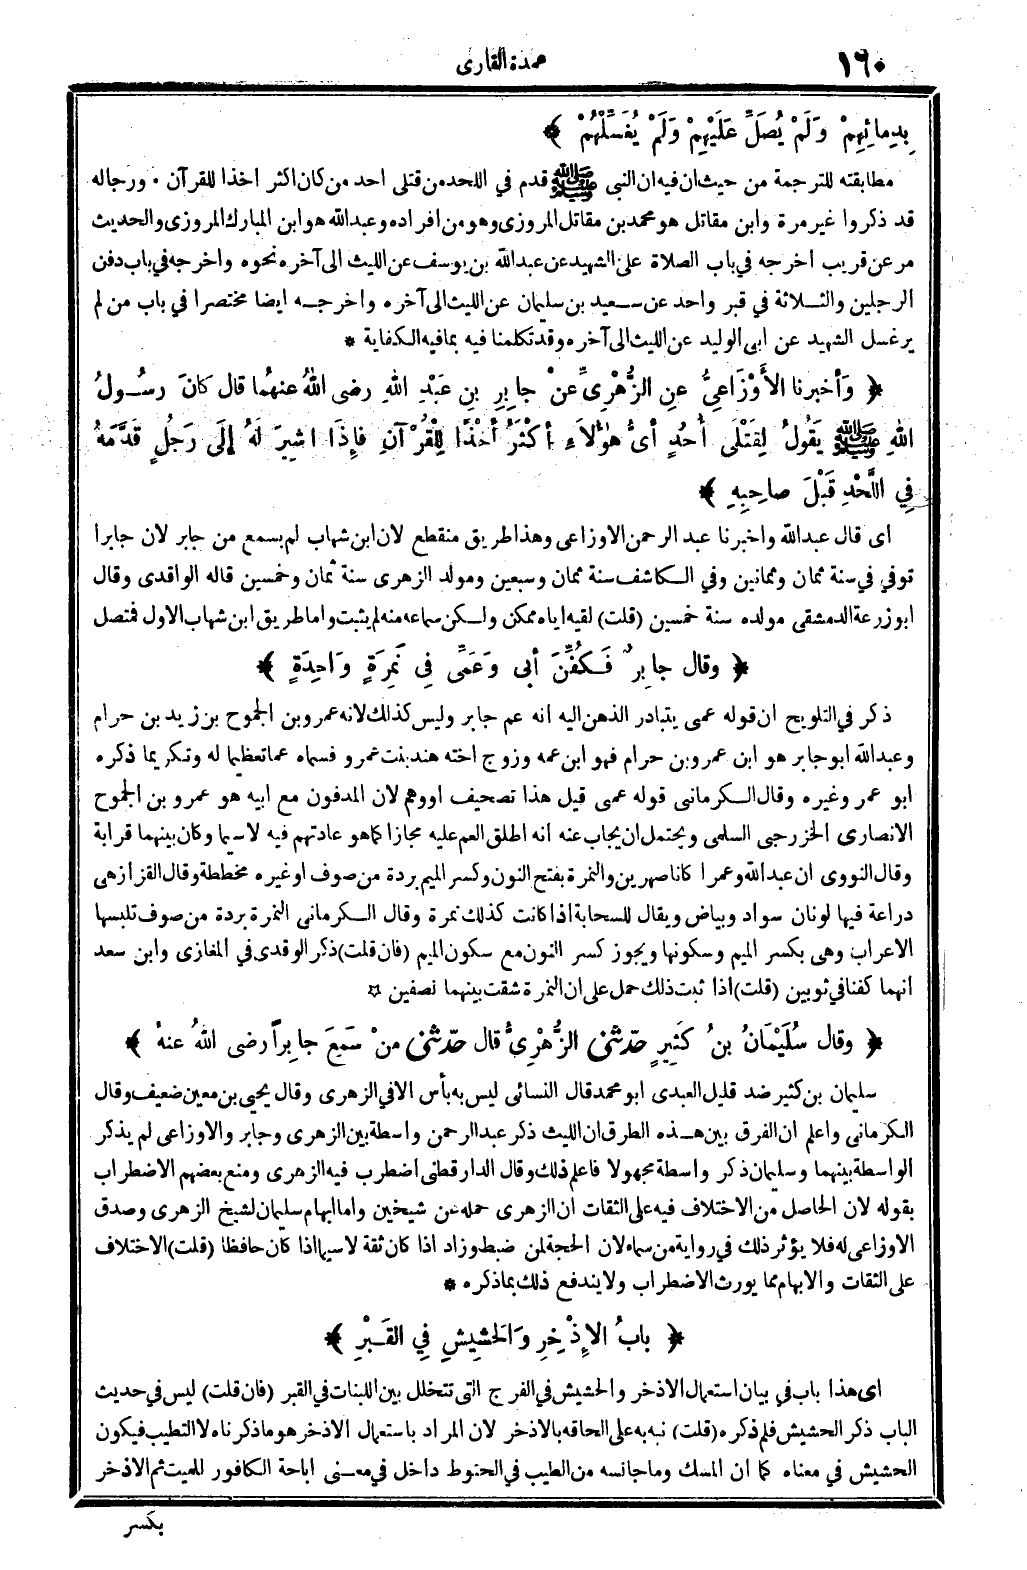 ١٦٠
عمدة القارى
بِدِمائِهِمْ وَلَمْ يُصَلِّ عَلَيْهِمْ وَلَمْ يُغَسِّلْهُمْ ﴾
مطابقته للترجمة من حيث ان فيه ان النبى ﷺ قدم في اللحد من قتلى احد من كان اكثر اخذا للقرآن ٠ ورجاله
قد ذكروا غير مرة وابن مقاتل هو محمد بن مقاتل المروزى وهو من افراده وعبد الله هو ابن المبارك المروزى والحديث
مر عن قريب اخرجه في باب الصلاة على الشهيد عن عبد الله بن يوسف عن الليث الى آخره نحوه واخرجه في باب دفن
الرجلين والثلاثة في قبر واحد عن سعيد بن سليمان عن الليث الى آخره واخرجه ايضا مختصرا في باب من لم
ير غسل الشهيد عن ابى الوليد عن الليث الى آخره وقد تكلمنا فيه بما فيه الكفاية *
﴿ وَأخبرنا الأَوْزَاعِىُّ عنِ الزُّهْرِىِّ عنْ جابِرِ بنِ عَبْدِ اللهِ رضى اللهُ عنهُما قال كانَ رسُولُ
اللهِ ﷺ يَقُولُ لِقَتْلَى أُحُدٍ أىُّ هٰؤُلاَءِ أكْثَرُ أخْذًا لِلْقُرْآنِ فإذَا اشِيرَ لَهُ إلَى رَجُلٍ قَدَّمَهُ
فِي اللَّحْدِ قَبْلَ صاحِبِهِ ﴾
اى قال عبد الله واخبرنا عبد الرحمن الاوزاعى وهذا طريق منقطع لان ابن شهاب لم يسمع من جابر لان جابرا
توفي في سنة ثمان وثمانين وفي الكاشف سنة ثمان وسبعين ومولد الزهرى سنة ثمان وخمسين قاله الواقدى وقال
ابو زرعة الدمشقى مولده سنة خمسين (قلت) لقيه اياه ممكن ولكن سماعه منه لم يثبت واما طريق ابن شهاب الاول فمتصل
﴿ وقال جابِرٌ فَكُفِّنَ أبى وَعَمِّى فِي نَمِرَةٍ وَاحِدَةٍ ﴾
ذكر في التلويح ان قوله عمى يتبادر الذهن اليه انه عم جابر وليس كذلك لانه عمرو بن الجموح بن زيد بن حرام
وعبد الله ابو جابر هو ابن عمرو بن حرام فهو ابن عمه وزوج اخته هند بنت عمرو فسماه عما تعظيما له وتكريما ذكره
ابو عمر وغيره وقال الكرمانى قوله عمى قيل هذا تصحيف او وهم لان المدفون مع ابيه هو عمرو بن الجموح
الانصارى الخزرجى السلمى ويحتمل ان يجاب عنه انه اطلق العم عليه مجازا كما هو عادتهم فيه لاسيما وكان بينهما قرابة
وقال النووى ان عبد الله وعمرا كانا صهرين والنمرة بفتح النون وكسر الميم بردة من صوف او غيره مخططة وقال القزاز هى
دراعة فيها لونان سواد وبياض ويقال للسحابة اذا كانت كذلك نمرة وقال الكرمانى النمرة بردة من صوف تلبسها
الاعراب وهى بكسر الميم وسكونها ويجوز كسر النون مع سكون الميم (فان قلت) ذكر الوقدى في المغازى وابن سعد
انهما كفنا في ثوبين (قلت) اذا ثبت ذلك حمل على ان النمرة شقت بينهما نصفين *
﴿ وقال سُلَيْمَانُ بنُ كَثِيرٍ حدّثنى الزُّهْرِىُّ قال حدّثنى منْ سَمِعَ جابِراً رضى اللهُ عنهُ ﴾
سليمان بن كثير ضد قليل العبدى ابو محمد قال النسائى ليس به بأس الا في الزهرى وقال يحيى بن معين ضعيف وقال
الكرمانى واعلم ان الفرق بين هذه الطرق ان الليث ذكر عبد الرحمن واسطة بين الزهرى وجابر والاوزاعى لم يذكر
الواسطة بينهما وسليمان ذكر واسطة مجهولا فاعلم ذلك وقال الدارقطنى اضطرب فيه الزهرى ومنع بعضهم الاضطراب
بقوله لان الحاصل من الاختلاف فيه على الثقات ان الزهرى حمله عن شيخين واما ابهام سليمان لشيخ الزهرى وصدق
الاوزاعى له فلا يؤثر ذلك في رواية من سماه لان الحجة لمن ضبط وزاد اذا كان ثقة لاسيما اذا كان حافظا (قلت) الاختلاف
على الثقات والابهام مما يورث الاضطراب ولا يندفع ذلك بما ذكره *
﴿ بابُ الإِذْخِرِ وَالحَشِيشِ فِي القَبْرِ ﴾
اى هذا باب في بيان استعمال الاذخر والحشيش في الفرج التى تتخلل بين اللبنات في القبر (فان قلت) ليس في حديث
الباب ذكر الحشيش فلم ذكره (قلت) نبه به على الحاقه بالاذخر لان المراد باستعمال الاذخر هو ما ذكرناه لا التطيب فيكون
الحشيش في معناه كما ان المسك وما جانسه من الطيب في الحنوط داخل في معنى اباحة الكافور للميت ثم الاذخر
بكسر